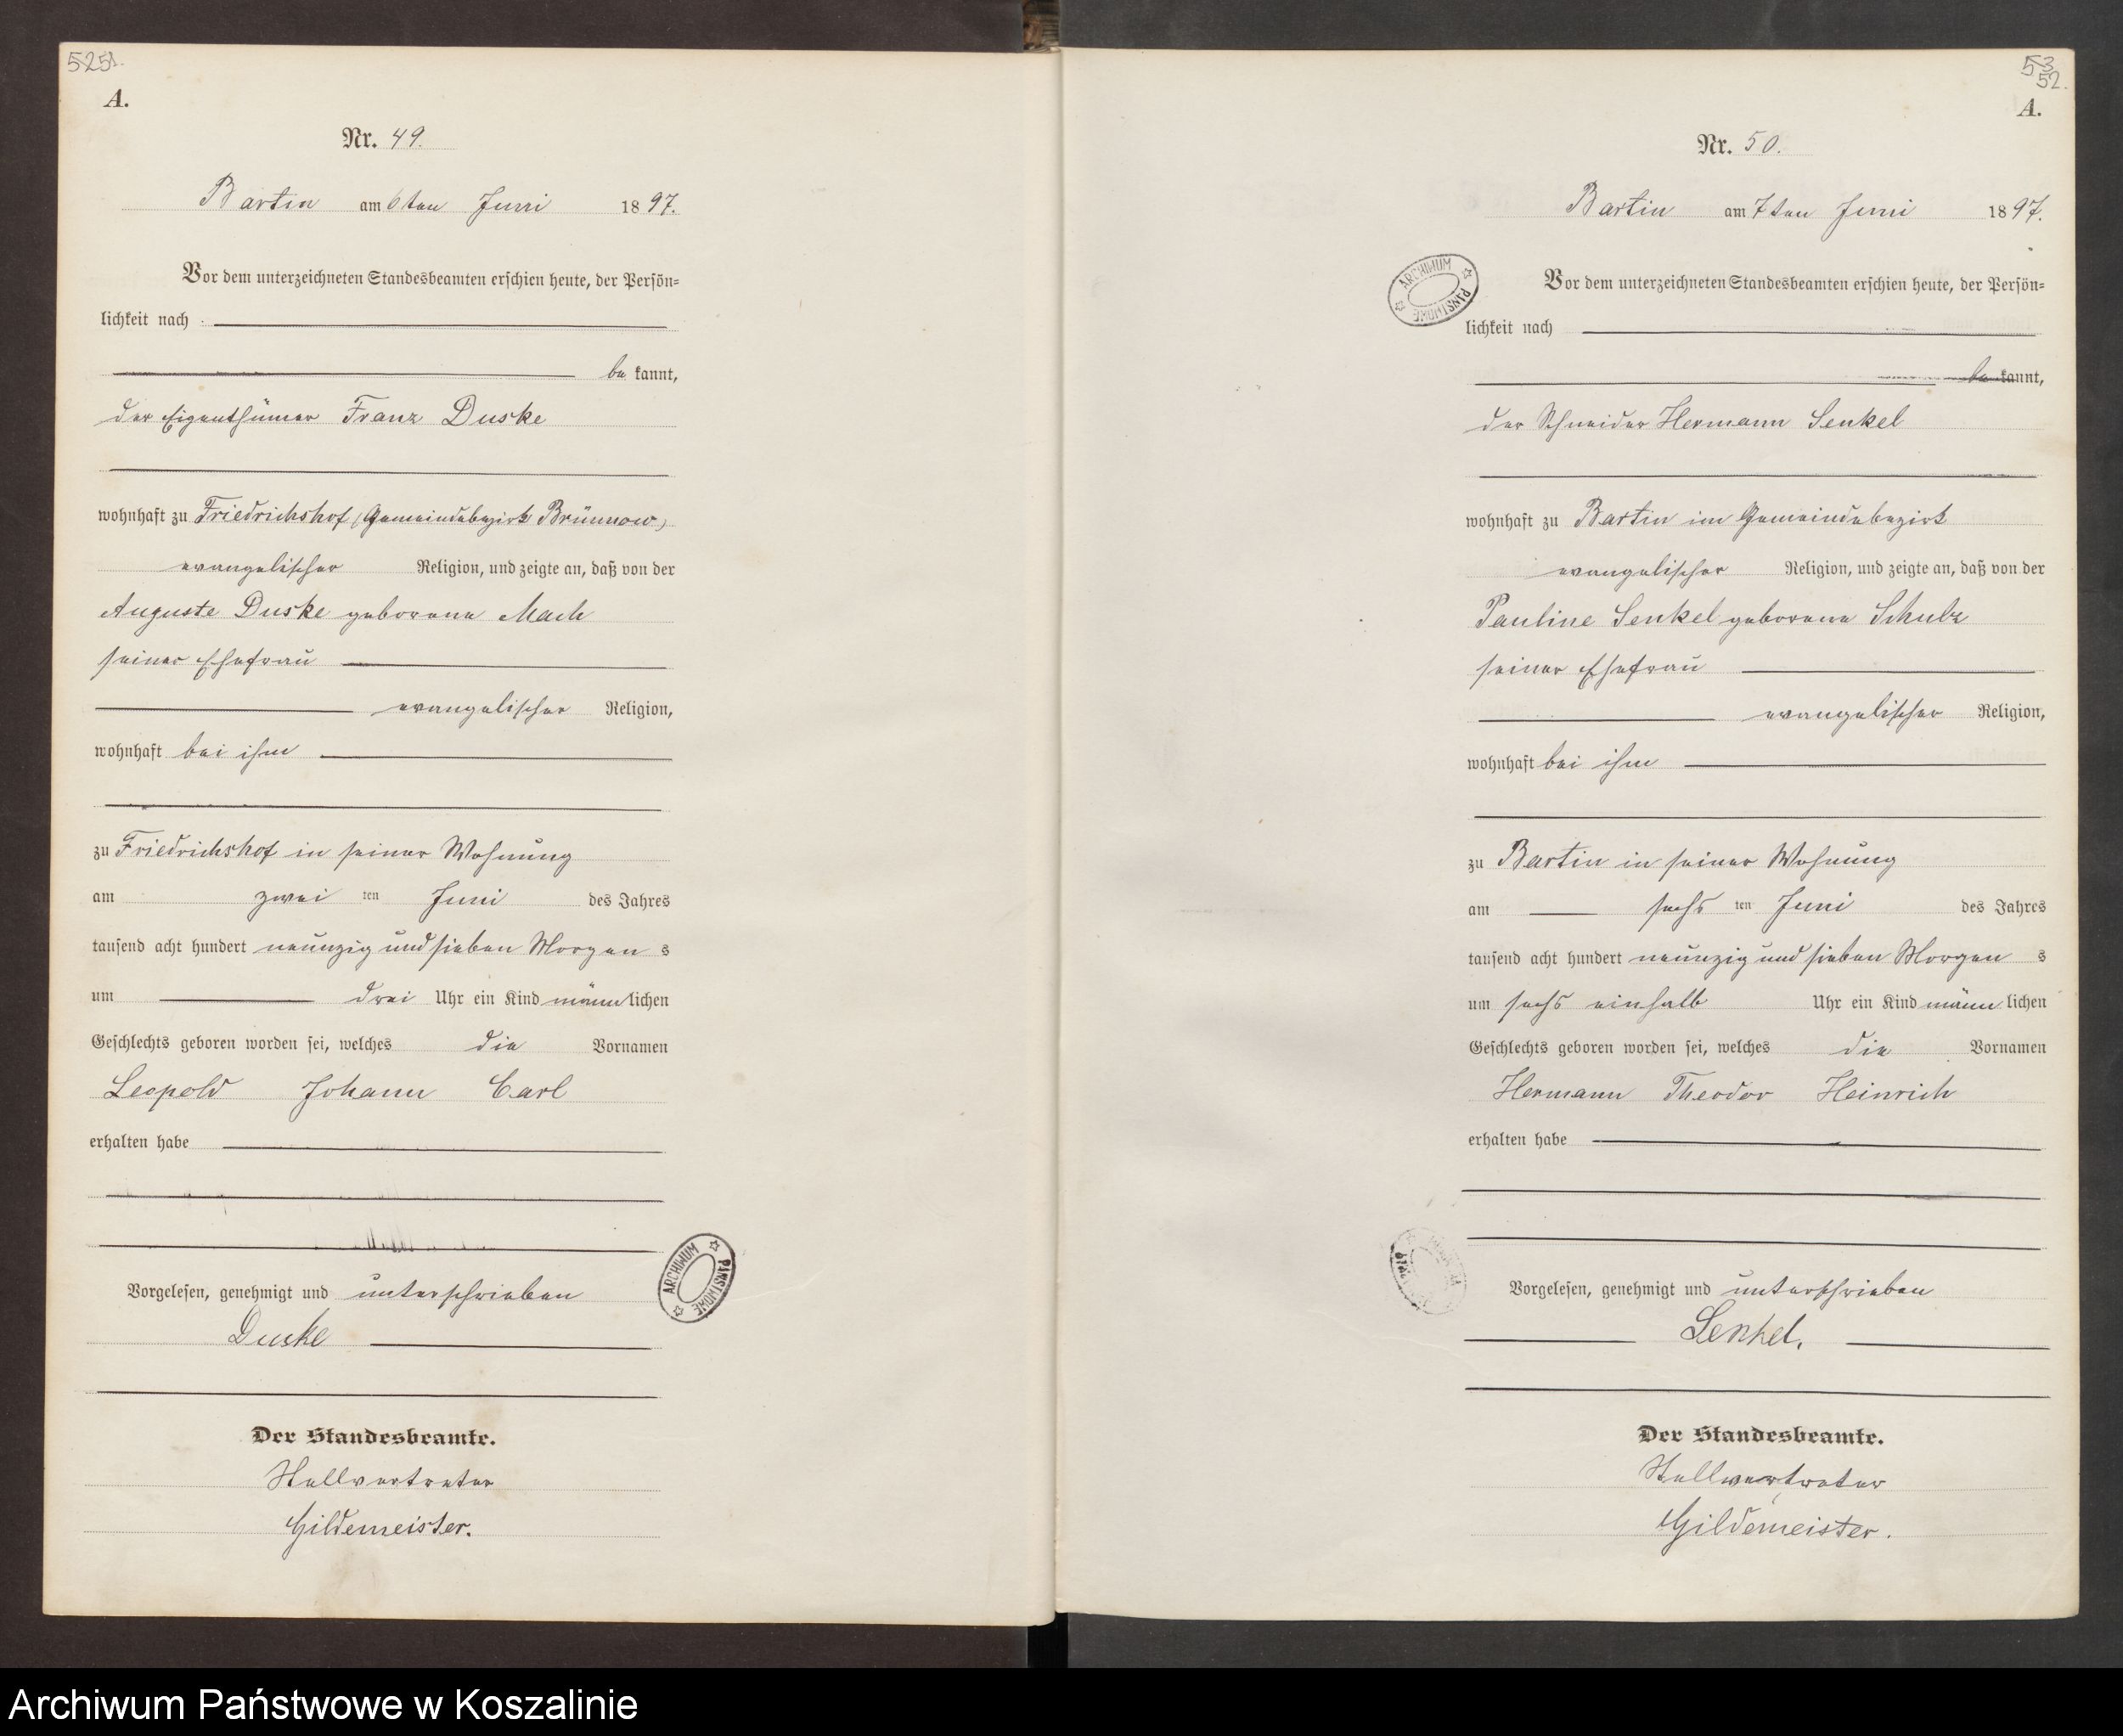 5251.
A.
Nr. 49.
Bartin am 6ten Juni 1897.
Vor dem unterzeichneten Standesbeamten erschien heute, der Persön-
lichkeit nach
be kannt,
der Eigenthümer Franz Duske
wohnhaft zu Friedrichshof (Gemeindebezirk Brünnow)
evangelischer Religion, und zeigte an, daß von der
Auguste Duske geborene Mach
seiner Ehefrau
evangelischer Religion,
wohnhaft bei ihm
zu Friedrichshof in seiner Wohnung
am zwei ten Juni des Jahres
tausend acht hundert neunzig und sieben Morgen s
um drei Uhr ein Kind männ lichen
Geschlechts geboren worden sei, welches die Vornamen
Leopold Johann Carl
erhalten habe
Vorgelesen, genehmigt und unterschrieben
Duske
Der Standesbeamte.
Stellvertreter
Gildemeister.
ARCHIWUM PAŃSTWOWE
53
52.
A.
Nr. 50.
Bartin am 7ten Juni 1897.
Vor dem unterzeichneten Standesbeamten erschien heute, der Persön-
lichkeit nach
be kannt,
der Schneider Hermann Senkel
wohnhaft zu Bartin im Gemeindebezirk
evangelischer Religion, und zeigte an, daß von der
Pauline Senkel geborene Schulz
seiner Ehefrau
evangelischer Religion,
wohnhaft bei ihm
zu Bartin in seiner Wohnung
am sechs ten Juni des Jahres
tausend acht hundert neunzig und sieben Morgen s
um sechs einhalb Uhr ein Kind männ lichen
Geschlechts geboren worden sei, welches die Vornamen
Hermann Theodor Heinrich
erhalten habe
Vorgelesen, genehmigt und unterschrieben
Senkel.
Der Standesbeamte.
Stellvertreter
Gildemeister.
ARCHIWUM PAŃSTWOWE
Archiwum Państwowe w Koszalinie